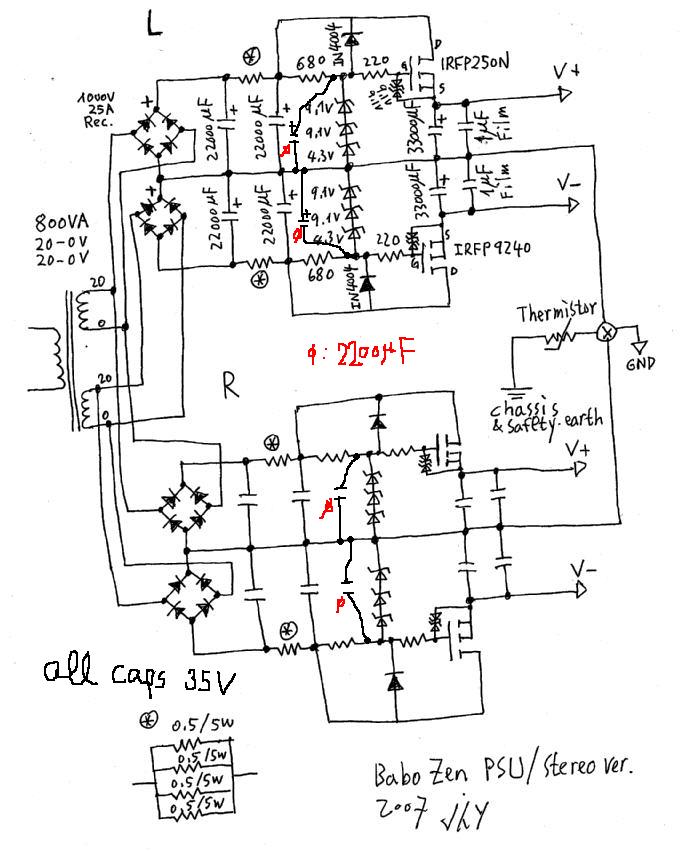 L
1000V
25A
Rec.
+
+
22000µF
+
22000µF
+
22000µF
+
22000µF
+
680
IN4004
220
D
G
S
IRFP250N
9.1V
9.1V
9.1V
9.1V
4.3V
9.1V
9.1V
4.3V
33000µF
+
33000µF
+
1µF
Film
1µF
Film
V+
V-
680
220
IN4004
G
S
D
IRFP9240
800VA
20-0V
20-0V
20
0
20
0
ø
ø
ø: 2200µF
R
Thermistor
GND
chassis
& safety-earth
V+
V-
ø
ø
all caps 35V
0.5/5W
0.5/5W
0.5/5W
0.5/5W
Babo Zen PSU/Stereo ver.
2007 jhY